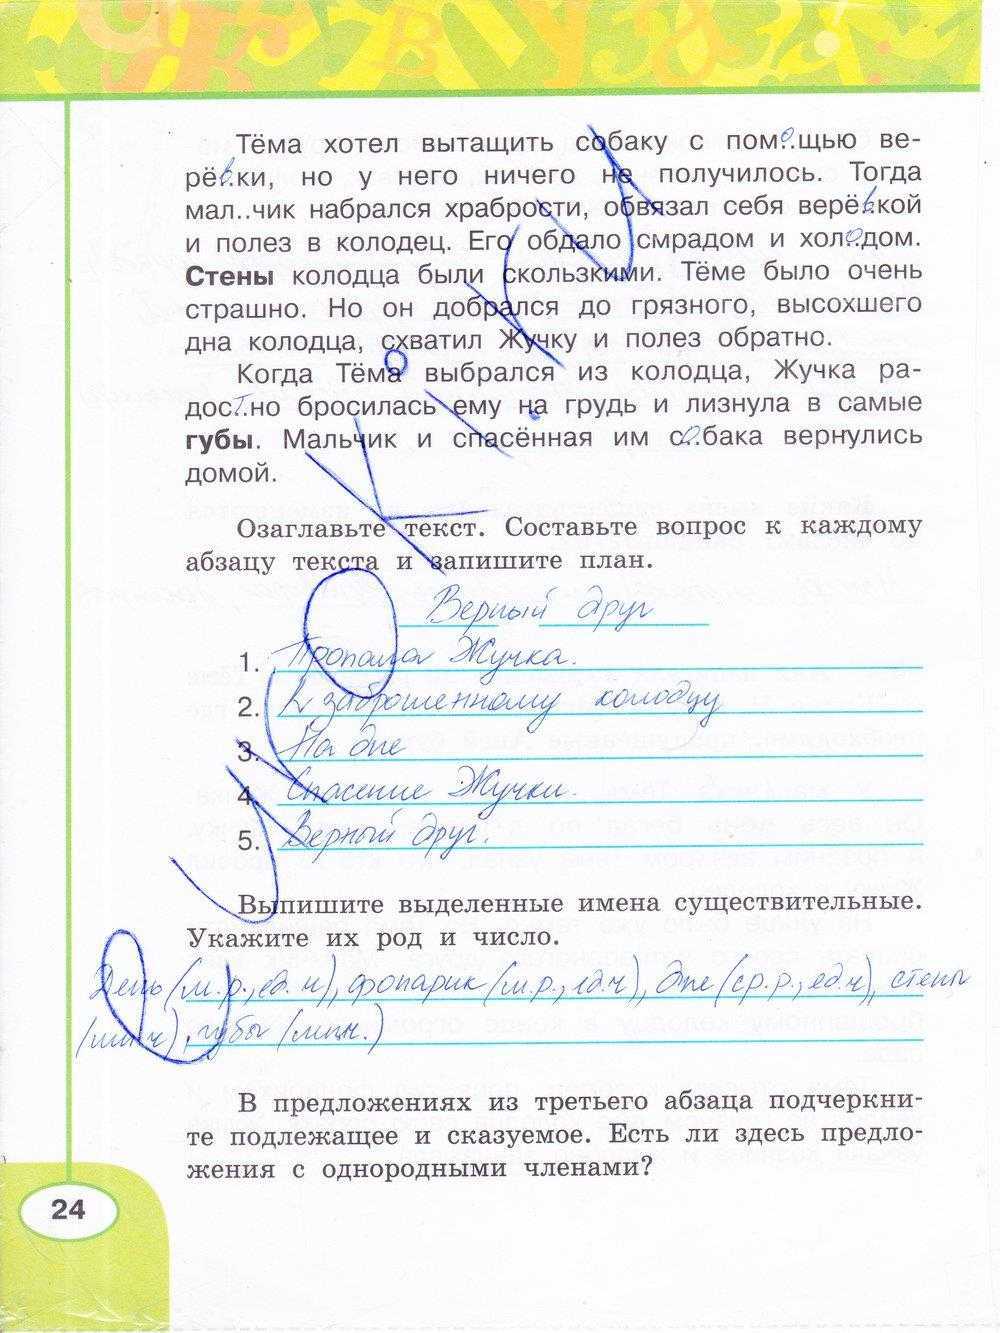 Тёма хотел вытащить собаку с пом о..щью ве-
рёв.ки, но у него ничего не получилось. Тогда
мал..чик набрался храбрости, обвязал себя верёв.кой
и полез в колодец. Его обдало смрадом и хол о.дом.
Стены колодца были скользкими. Тёме было очень
страшно. Но он добрался до грязного, высохшего
дна колодца, схватил Жучку и полез обратно.
Когда Тёма выбрался из колодца, Жучка ра-
дост.но бросилась ему на грудь и лизнула в самые
губы. Мальчик и спасённая им со.бака вернулись
домой.
Озаглавьте текст. Составьте вопрос к каждому
абзацу текста и запишите план.
Верный друг
1. Пропажа Жучка.
2. К заброшенному колодцу
3. На дне
4. Спасение Жучки.
5. Верный друг.
Выпишите выделенные имена существительные.
Укажите их род и число.
День (м.р., ед.ч), фонарик (м.р., ед.ч), дне (ср.р., ед.ч), стены
(мн.ч), губы (мн.ч.)
В предложениях из третьего абзаца подчеркни-
те подлежащее и сказуемое. Есть ли здесь предло-
жения с однородными членами?
24